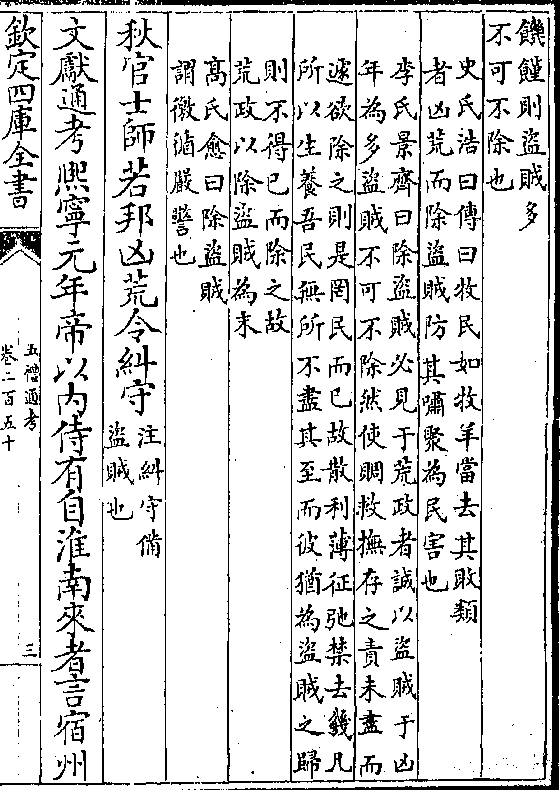 饑饉則盜賊多
不可不除也
史氏浩曰傳曰牧民如牧羊當去其敗類
者凶荒而除盜賊防其嘯聚為民害也
李氏景齊曰除盜賊必見于荒政者誠以盜賊于凶
年為多盜賊不可不除然使賙救撫存之責未盡而
遽欲除之則是罔民而已故散利薄征弛禁去幾凡
所以生養吾民無所不盡其至而彼猶為盜賊之歸
則不得已而除之故
荒政以除盜賊為末
髙氏愈曰除盜賊
謂徼循嚴警也
秋官士師若邦凶荒令糾守
注糾守備
盜賊也
文獻通考熙寧元年帝以內侍有自淮南來者言宿州
欽定四庫全書
五禮通考
卷二百五十
三